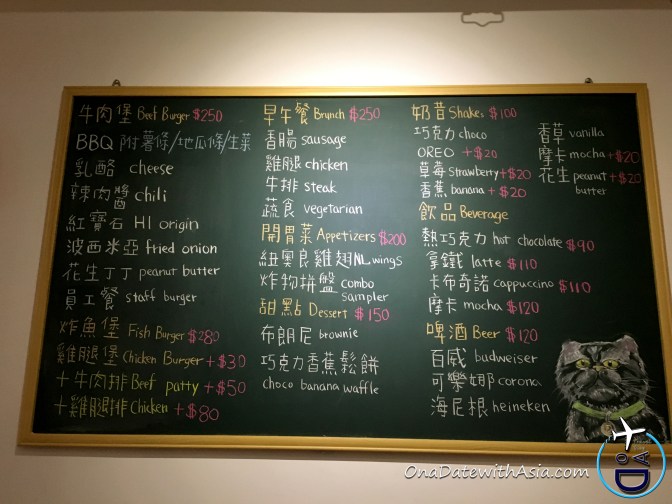 牛肉堡 Beef Burger $250
BBQ 附薯條/地瓜條/生菜
乳酪 cheese
辣肉醬 chili
紅寶石 HI origin
波西米亞 fried onion
花生丁丁 peanut butter
員工餐 staff burger
炸魚堡 Fish Burger $280
雞腿堡 Chicken Burger +$30
+牛肉排 Beef patty +$50
+雞腿排 Chicken +$80
早午餐 Brunch $250
香腸 sausage
雞腿 chicken
牛排 steak
蔬食 vegetarian
開胃菜 Appetizers $200
紐奧良雞翅 NL wings
炸物拼盤 combo sampler
甜點 Dessert $150
布朗尼 brownie
巧克力香蕉鬆餅
choco banana waffle
奶昔 Shakes $100
巧克力 choco
OREO +$20
草莓 strawberry +$20
香蕉 banana +$20
香草 vanilla
摩卡 mocha +$20
花生 peanut butter +$20
飲品 Beverage
熱巧克力 hot chocolate $90
拿鐵 latte $110
卡布奇諾 cappuccino $110
摩卡 mocha $120
啤酒 Beer $120
百威 budweiser
可樂娜 corona
海尼根 heineken
OnaDatewithAsia.com